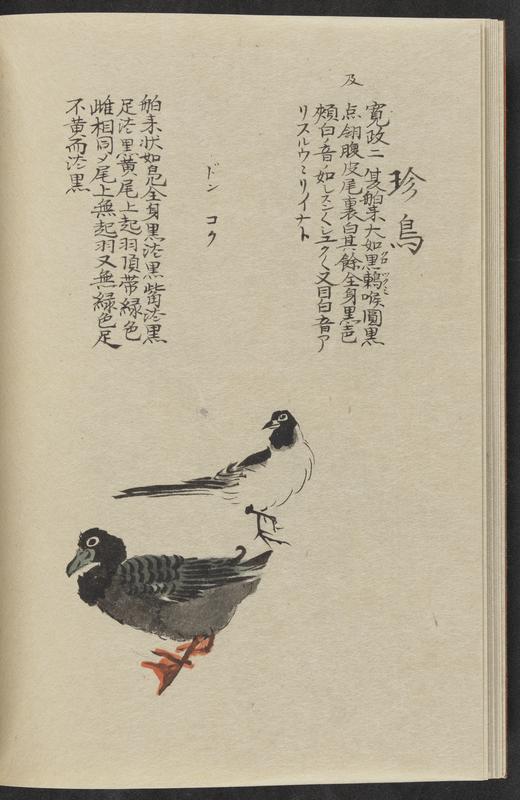 珍鳥
寛政二 舶来大如黒鶇喉圓黒
クロツグミ
及
点翎腹皮尾裏白其餘全身黒色
頰白音如 又目白音ア
リスルウミリイナト
ドンコク
舶来状如鳧全身黒淡黒觜淡黒
足淡黒黄尾上起羽頂帯緑色
雌相同〆尾上無起羽又無緑色足
不黄而淡黒